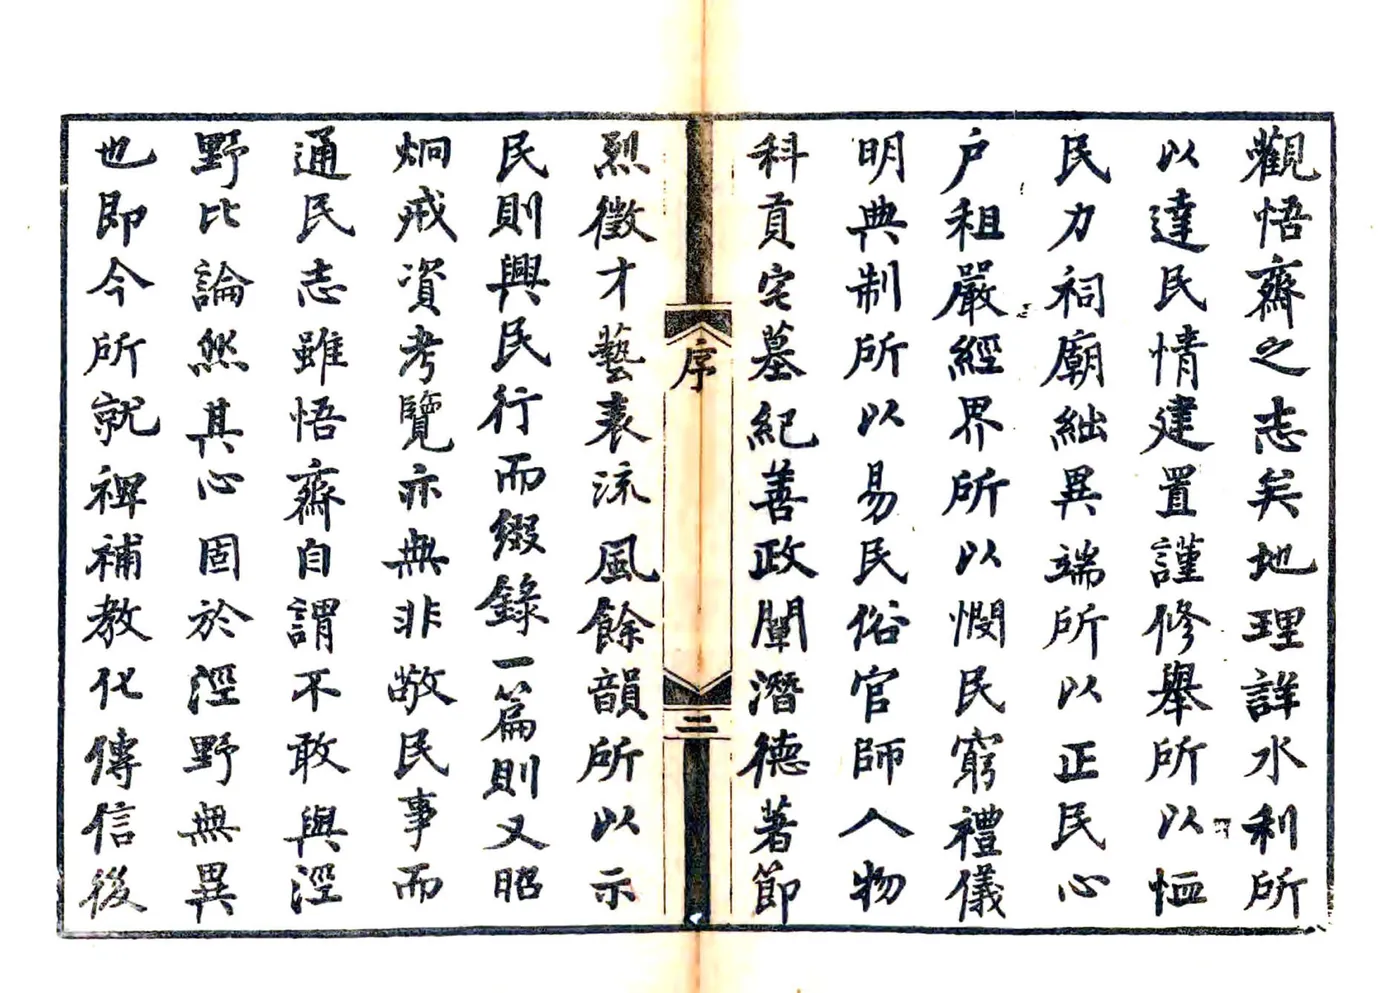 觀悟齋之志矣地理詳水利所
以達民情建置謹修舉所以恤
民力祠廟絀異端所以正民心
户租嚴經界所以憫民窮禮儀
明典制所以易民俗官師人物
科貢宅墓紀善政闡潛德著節
序
二
烈徵才藝表流風餘韻所以示
民則興民行而綴錄一篇則又昭
炯戒資考覽亦無非敬民事而
通民志雖悟齋自謂不敢與涇
野比論然其心固於涇野無異
也即今所就裨補教化傳信後